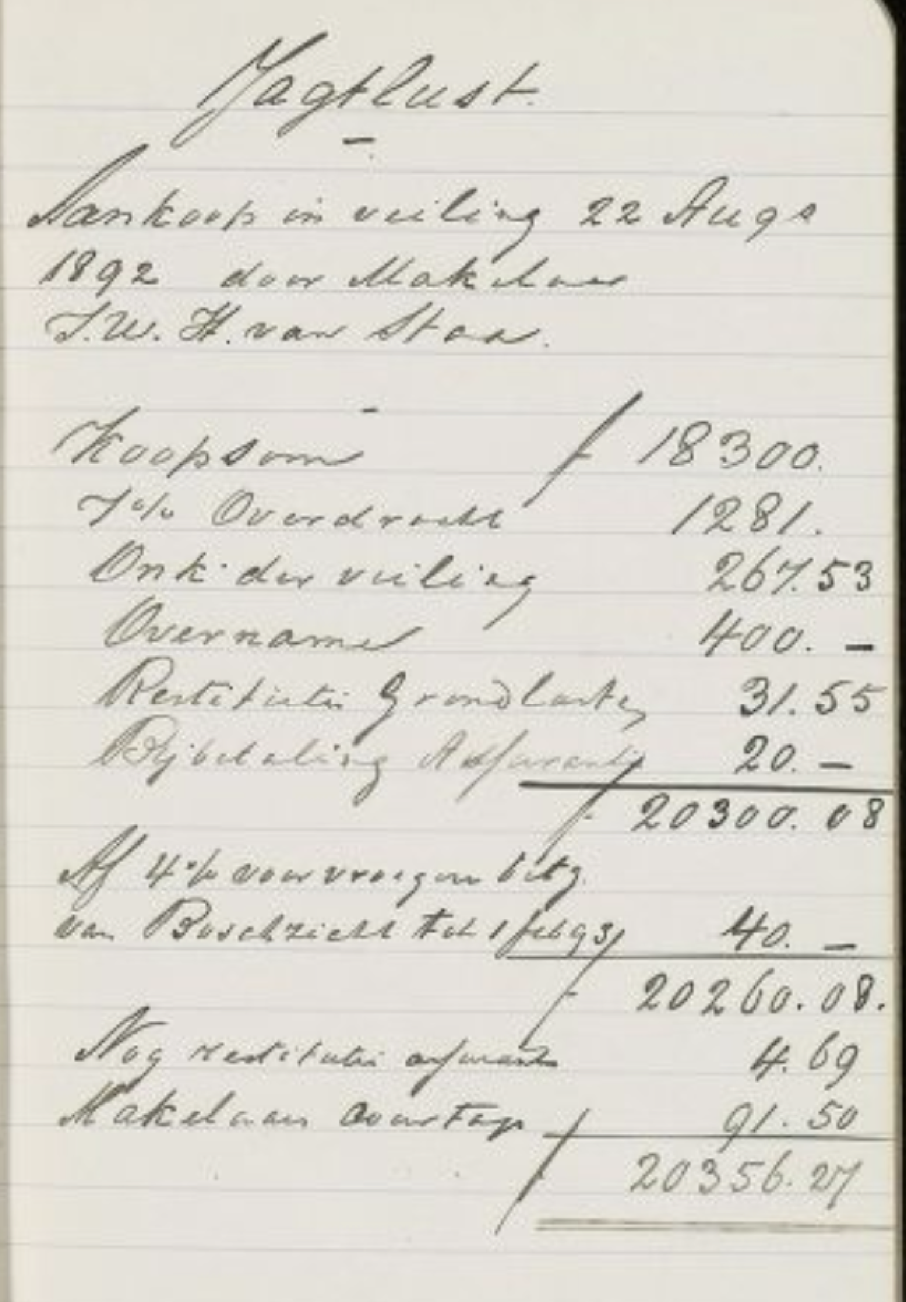 Jagtlust.
Aankoop in veiling 22 Augs
1892 door Makelaar
J.W.H. van Staa.
Koopsom f 18300.
7% Overdracht 1281.
Onk. der veiling 267.53
Overname 400.—
Restitutie Grondlasten 31.55
Bijbetaling Assurantie 20.—
f 20300.08
Af 4% voor vroegere betg.
van Boschzicht tot 1 feb 93 40.—
f 20260.08.
Nog restitutie assurantie 4.69
Makelaars Courtage 91.50
f 20356.27